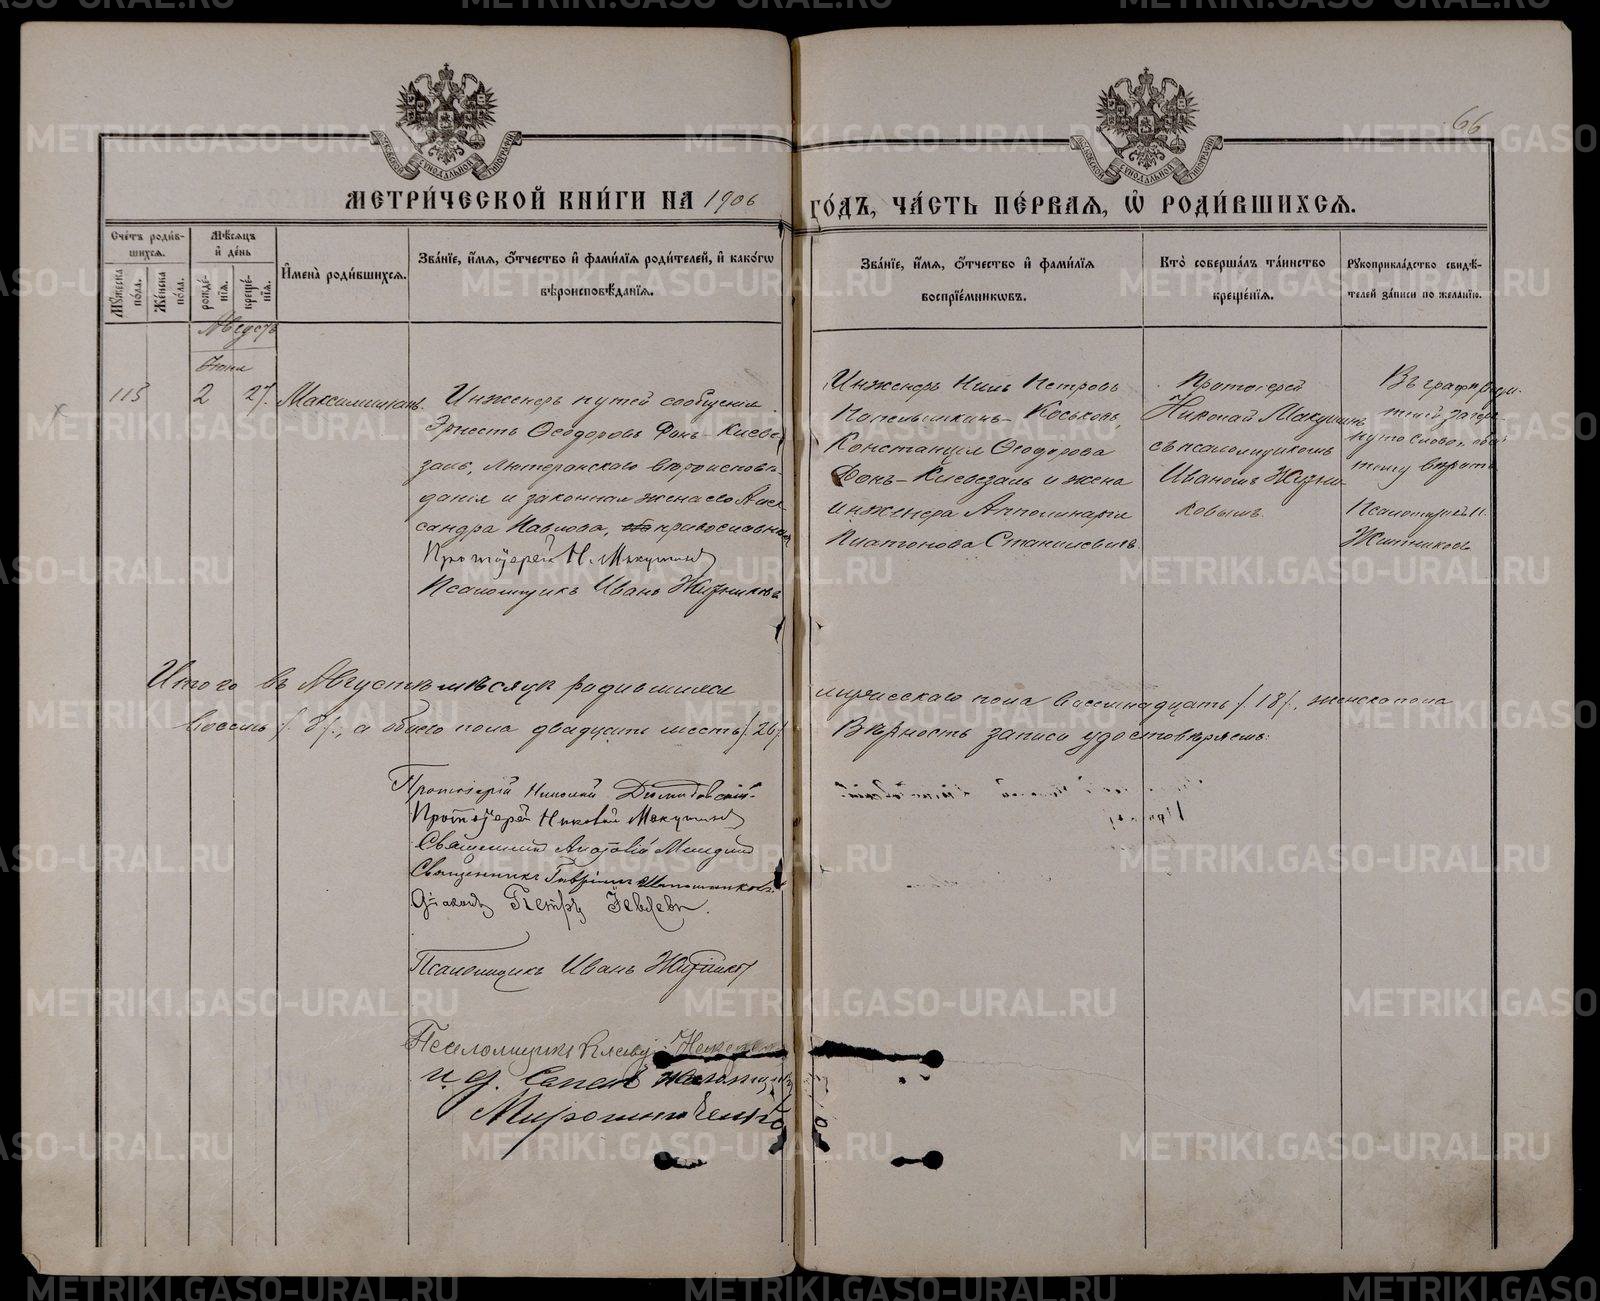 66
МЕТРИ́ЧЕСКОЙ КНИ́ГИ НА 1906 ГО́ДЪ, ЧА́СТЬ ПЕ́РВАЯ, Ѡ҆ РОДИ́ВШИХСЯ.
Сче́тъ роди́в-
шихся.
Мꙋ́жеска по́ла.
Же́нска по́ла.
Мѣ́сяцъ
и҆ де́нь
рожде́-
нїя.
креще́-
нїя.
И҆мена̀ роди́вшихся.
Зва́нїе, и҆́мя, ѻ҆́тчество и҆ фами́лїя роди́телей, и҆ како́гѡ
вѣроисповѣ́данїя.
Зва́нїе, и҆́мя, ѻ҆́тчество и҆ фами́лїя
воспрїе́мникѡвъ.
Кто̀ соверша́лъ та́инство
креще́нїя.
Рꙋкоприкла́дство свидѣ́-
телей за́писи по жела́нїю.
Августъ
Іюня
115
2
27.
Максимиліанъ.
Инженеръ путей сообщенія
Эрнестъ Ѳеодоровъ Фонъ-Киве-
заль, лютеранскаго вѣроисповѣ-
данія и законная жена его Алек
сандра Павлова, православная
Протоіерей Н. Макушинъ
Псаломщикъ Иванъ Житниковъ
Инженеръ Нилъ Петровъ
Константія Ѳеодорова
Фонъ-Кивезаль и жена
инженера Апполинарія
Платонова Станкевичъ.
Протоіерей
Николай Макушинъ
съ псаломщикомъ
Иваномъ Житни-
ковымъ.
Въ графѣ роди-
телей зачерк-
нуто слово "оба"
тому вѣрить
Псаломщикъ И.
Житниковъ
Итого въ Августѣ мѣсяцѣ родившихся мужескаго пола восемнадцать /18/, женска пола
восемь /8/, а обоего пола двадцать шесть /26/ Вѣрность записи удостовѣряемъ:
Протоіерей Николай Диомидовскій.
Протоіерей Николай Макушинъ
Священникъ
Священникъ Гавріилъ
Діаконъ Петръ Іевлевъ.
Псаломщикъ Иванъ Житниковъ
Псаломщикъ
и. д. псаломщика
Мирошниченко
METRIKI.GASO-URAL.RU